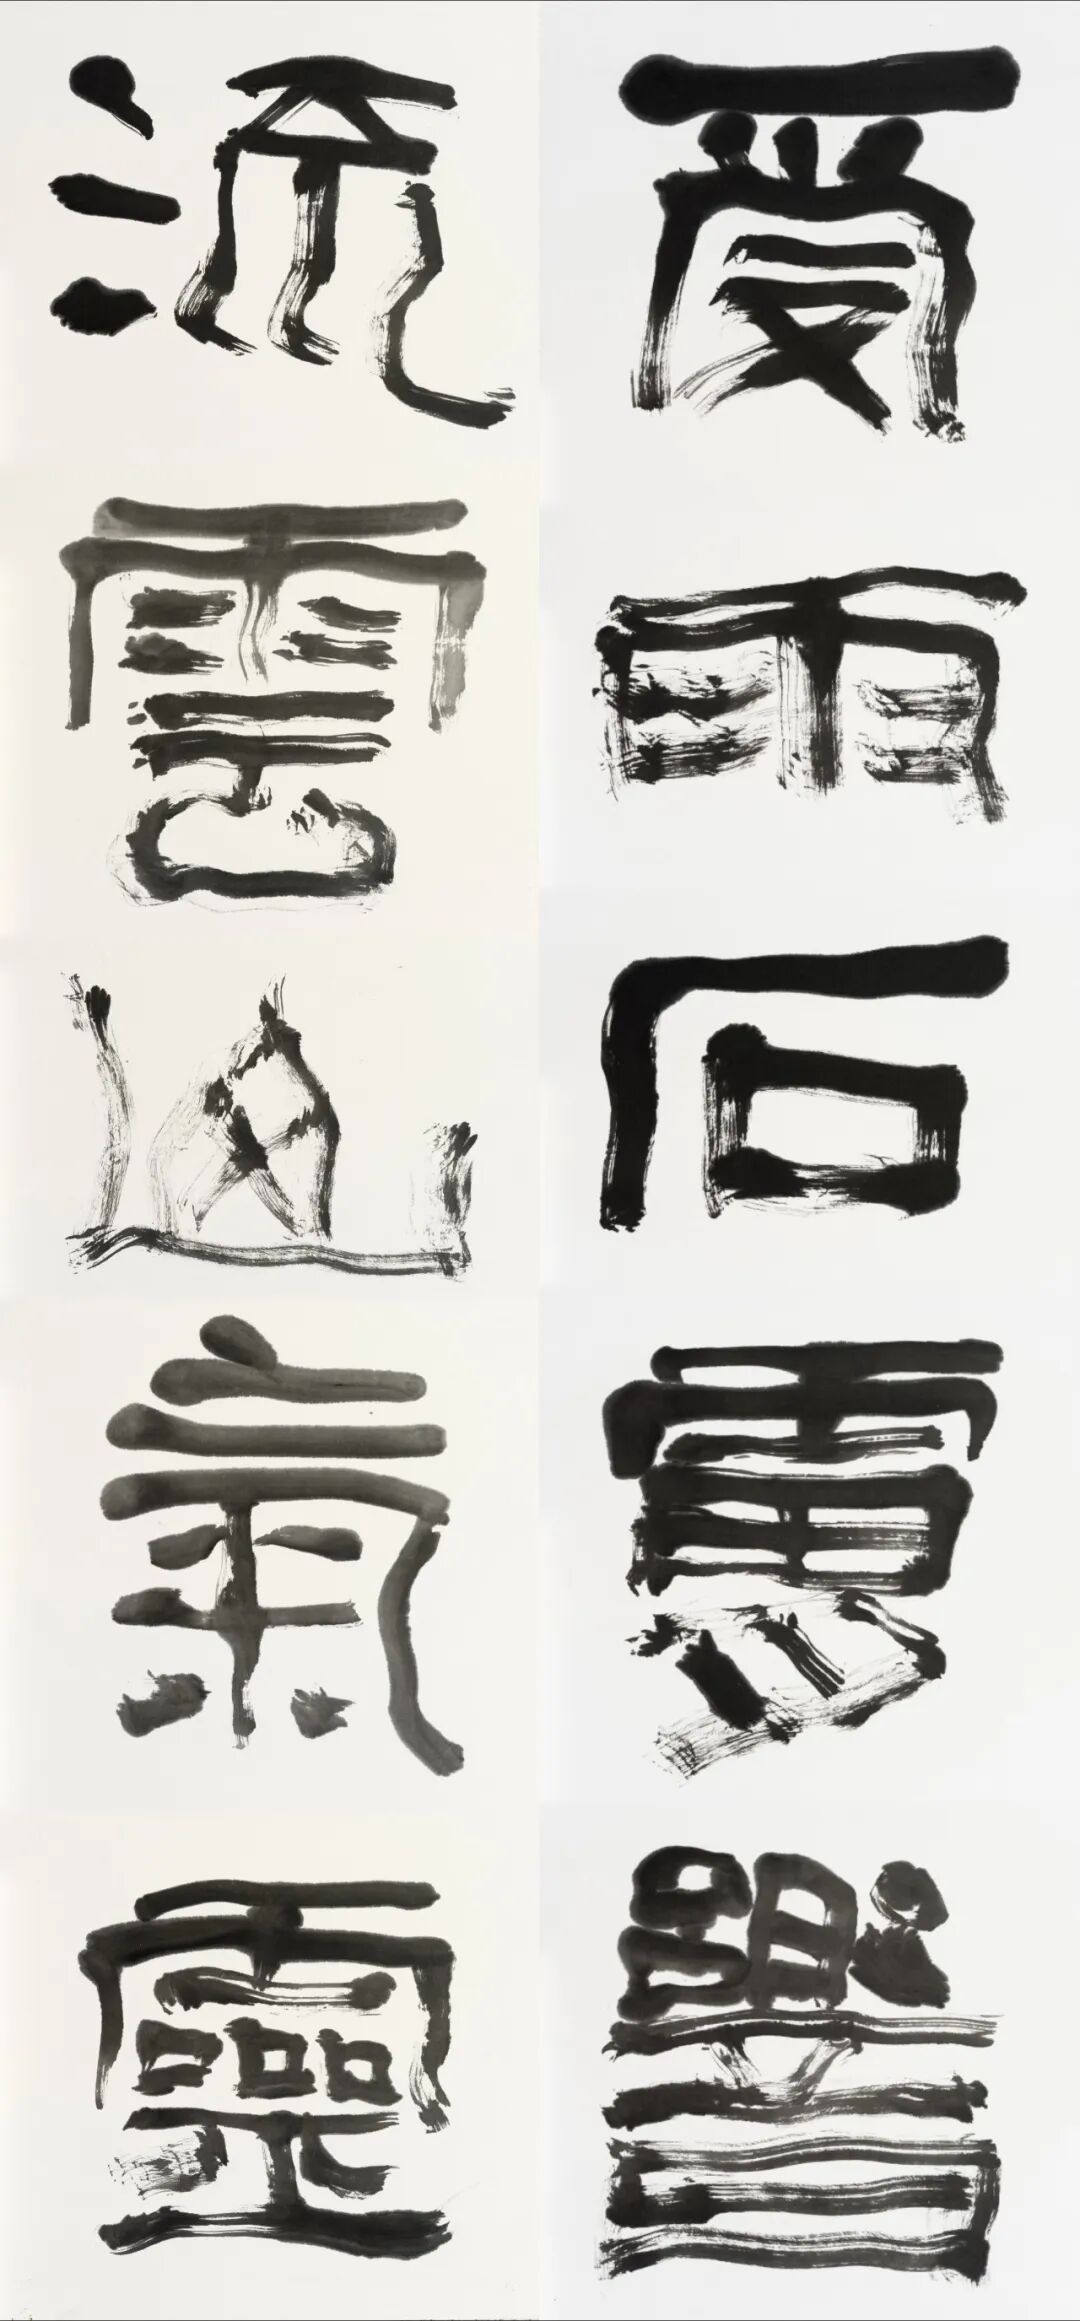 受雨石響
流雲山氣靈